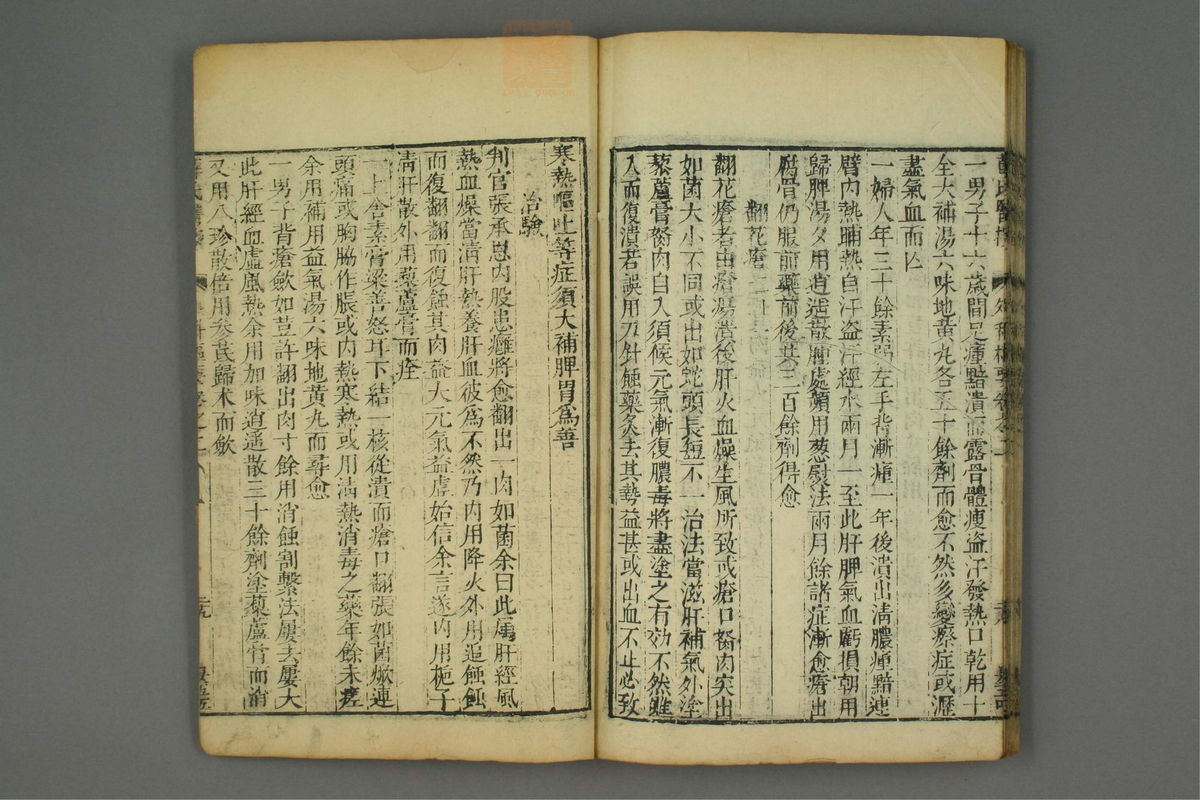 一男子十六歲間足瘇黯潰而露骨體瘦盜汗發熱口乾用十
全大補湯六味地黃丸各五十餘劑而愈不然多變瘵症或瀝
盡氣血而亡
一婦人年三十餘素弱左手背漸瘇一年後潰出淸膿瘇黯連
臂内熱晡熱自汗盜汗經水兩月一至此肝脾氣血虧損朝用
歸脾湯夕用逍遙散腫處頻用葱熨法兩月餘諸症漸愈瘡出
腐骨仍服前藥前後共三百餘劑得愈
翻花瘡
翻花瘡者由瘡瘍潰後肝火血燥生風所致或瘡口努肉突出
如菌大小不同或出如蛇頭長短不一治法當滋肝補氣外塗
藜蘆膏努肉自入須候元氣漸復膿毒將盡塗之有效不然雖
入而復潰若誤用刀針蝕藥灸去其勢益甚或出血不止必致
寒熱嘔吐等症須大補脾胃爲善
治驗
判官張承恩内股患癰將愈翻出一肉如菌余曰此屬肝經風
熱血燥當淸肝熱養肝血彼爲不然乃内用降火外用追蝕蝕
而復翻翻而復蝕其肉益大元氣益虛始信余言遂内用梔子
淸肝散外用藜蘆膏而痊
一上舍素膏粱善怒耳下結一核從潰而瘡口翻張如菌焮連
頭痛或胸脇作脹或内熱寒熱或用淸熱消毒之藥年餘未瘥
余用補用益氣湯六味地黃丸而尋愈
一男子背瘡斂如荳許翻出肉寸餘用消蝕割繫法屢去屢大
此肝經血虛風熱余用加味逍遙散三十餘劑塗藜蘆膏而消
又用八珍散倍用參芪歸术而斂